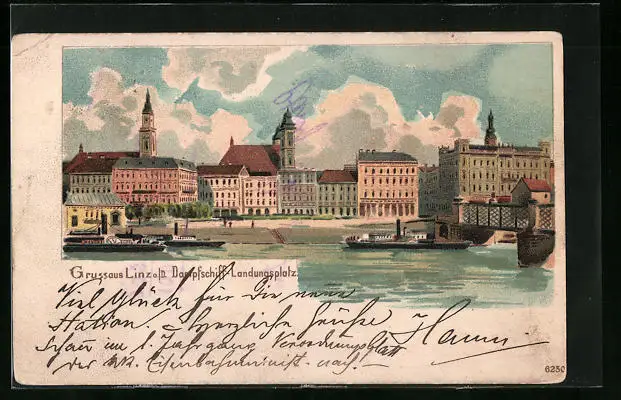 Gruss aus Linz a/D. Dampfschiff-Landungsplatz.
Viel Glück für die neue
Station. Herzliche Grüße Hanni
Schau im 1. Jahrgang Verordnungsblatt
der kk. Eisenbahnminist. nach!
6250